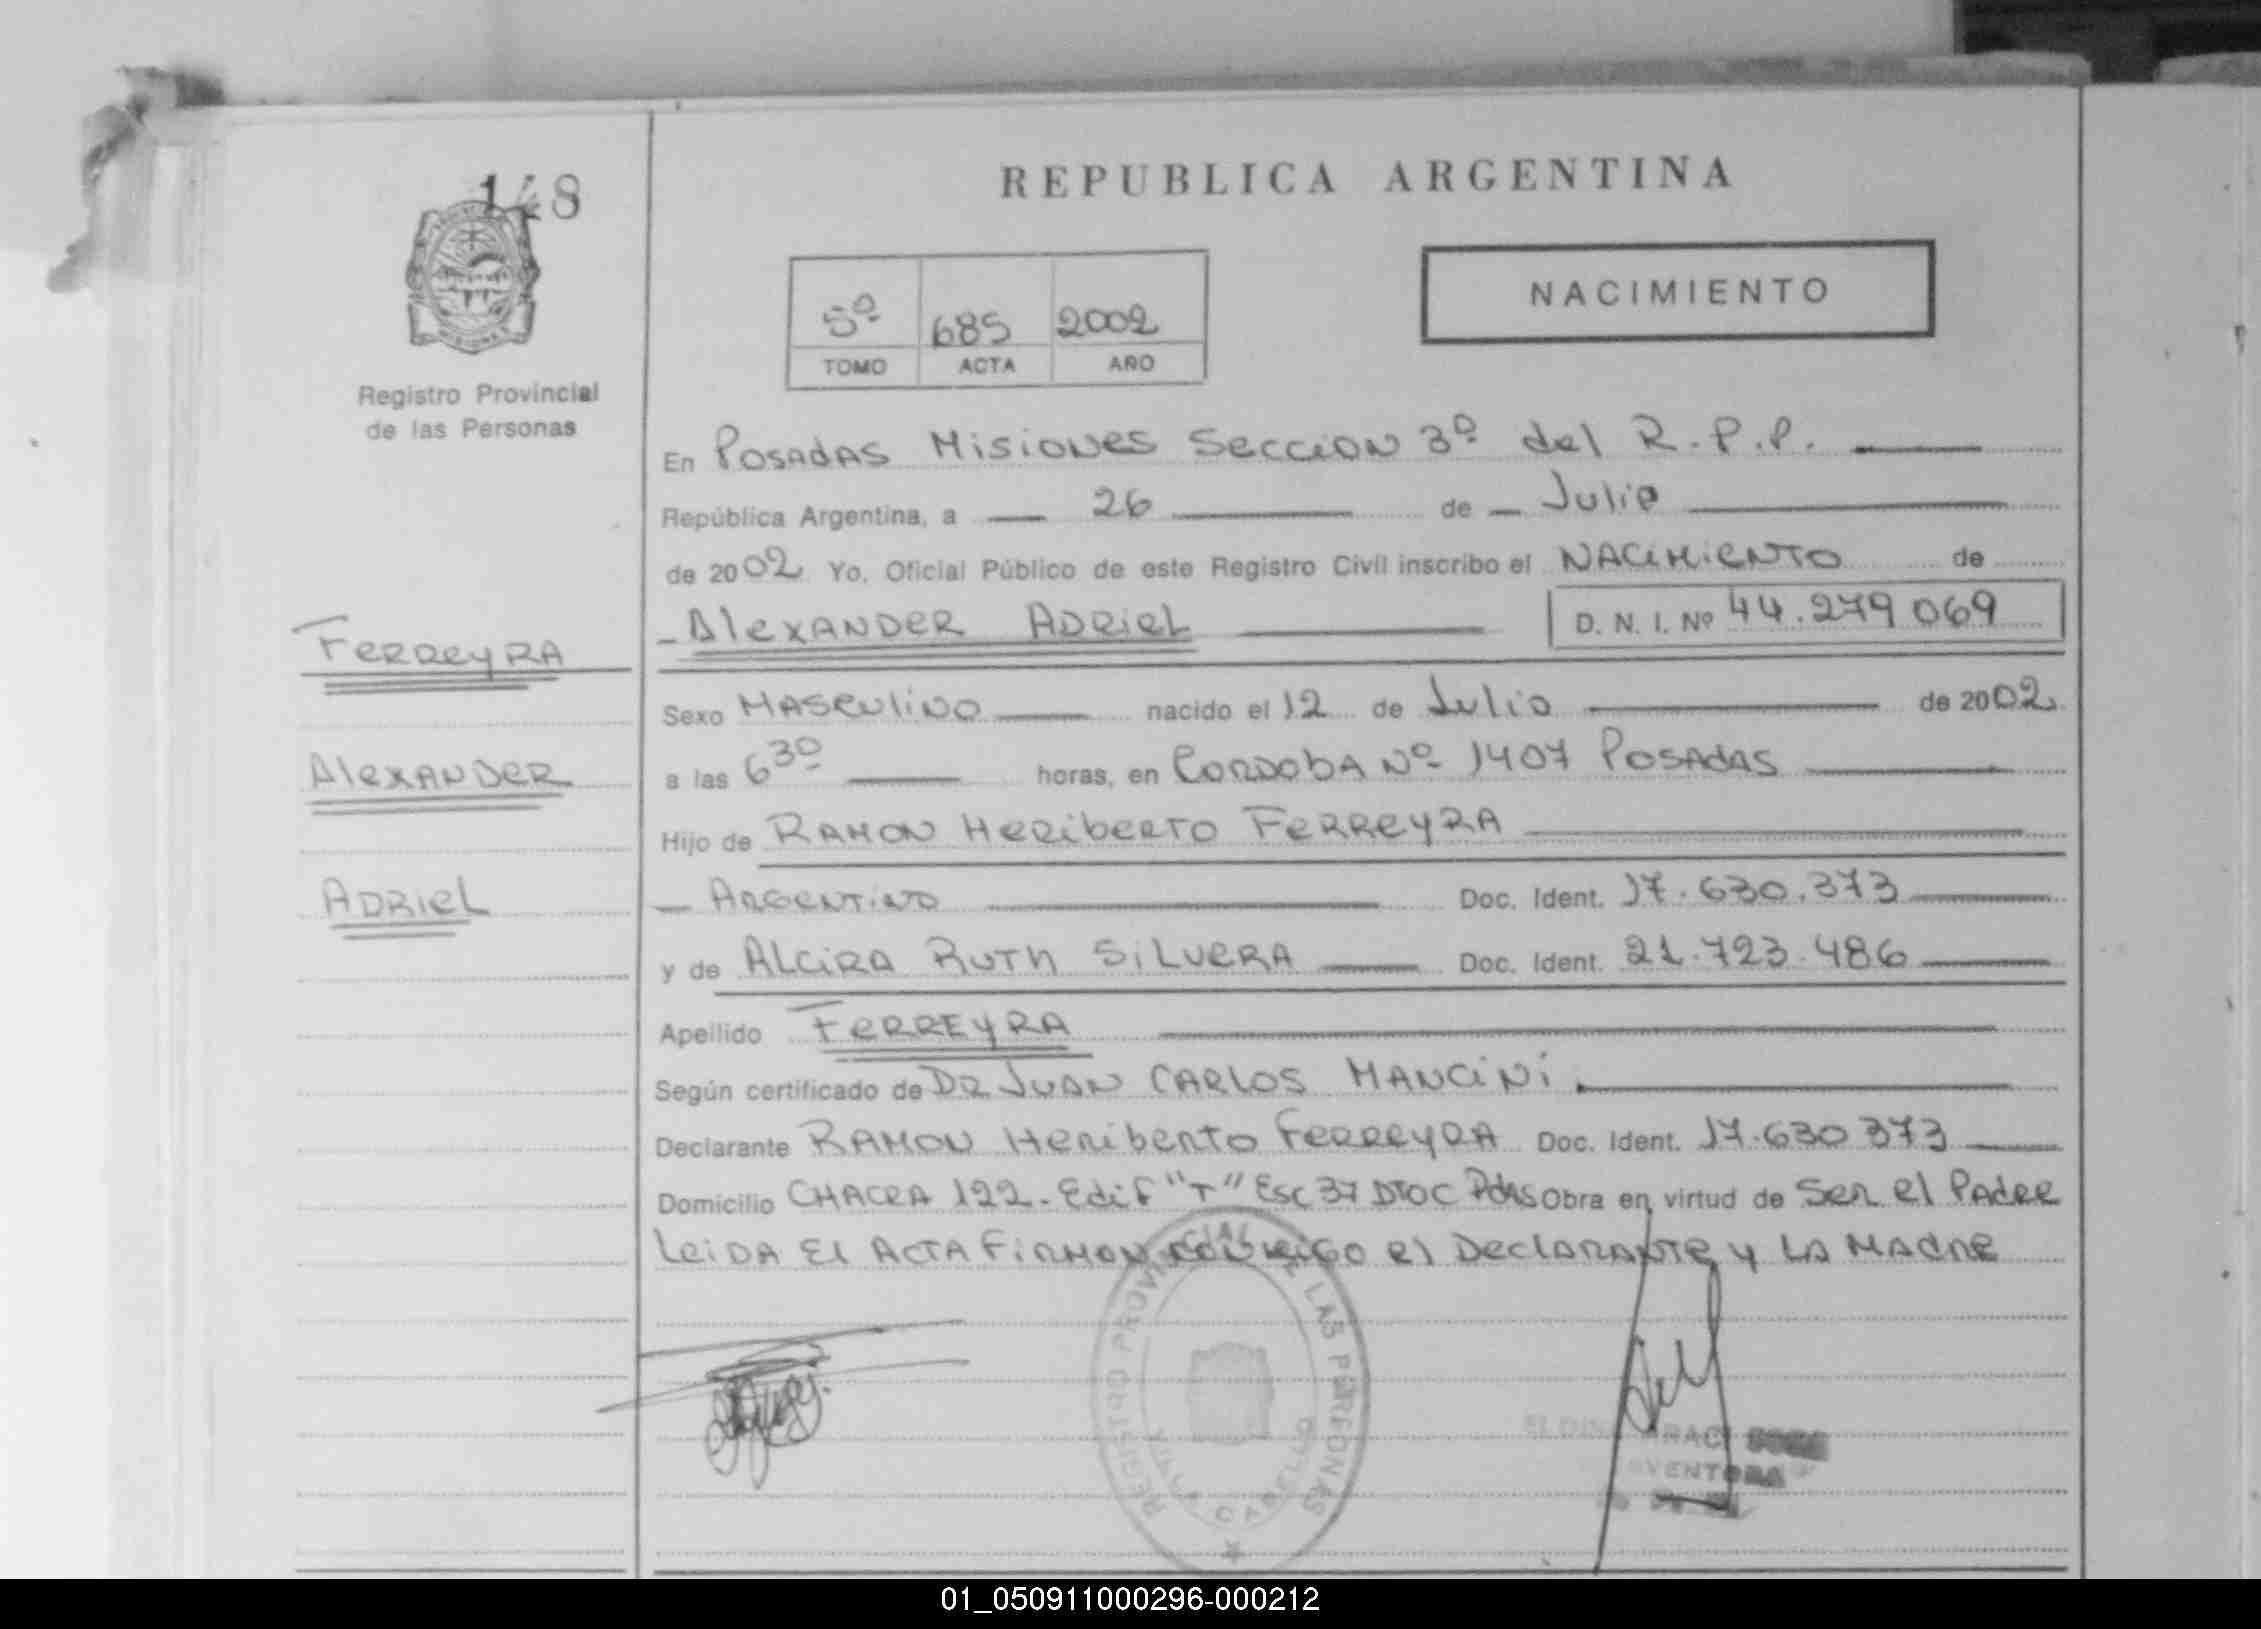 148
REPUBLICA ARGENTINA
NACIMIENTO
5º 685 2002
TOMO ACTA AÑO
Registro Provincial
de las Personas
En Posadas Misiones Seccion 3º del R.P.P.
República Argentina, a 26 de Julio
de 2002 Yo, Oficial Público de este Registro Civil inscribo el NACIMIENTO de
Alexander Adriel D. N. I. Nº 44.279069
Ferreyra
Alexander
Adriel
Sexo Masculino nacido el 12 de Julio de 2002
a las 6 30 horas, en Cordoba Nº 1407 Posadas
Hijo de Ramon Heriberto Ferreyra
Argentino Doc. Ident. 17.630.373
y de Alcira Ruth Silvera Doc. Ident. 21.723.486
Apellido Ferreyra
Según certificado de Dr Juan Carlos Mancini.
Declarante Ramon Heriberto Ferreyra Doc. Ident. 17.630373
Domicilio Chacra 122- Edif "T" Esc 37 DTO C Pdas Obra en virtud de Ser el Padre
Leida El Acta Firman conmigo el Declarante y La Madre
REGISTRO PROVINCIAL DE LAS PERSONAS
VILLA CABELLO
01_050911000296-000212